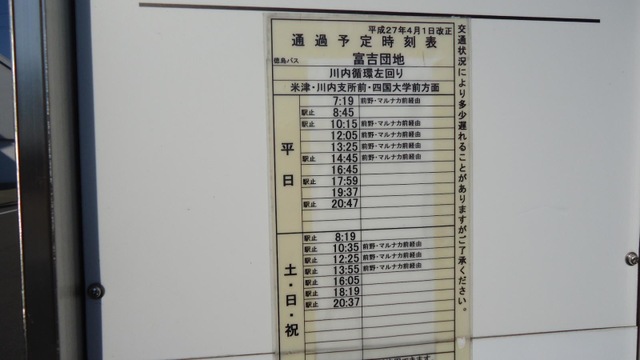 平成27年4月1日改正
通過予定時刻表
徳島バス 富吉団地
川内循環左回り
米津・川内支所前・四国大学前方面
平日
7:19 前野・マルナカ前経由
駅止 8:45
駅止 10:15 前野・マルナカ前経由
12:05 前野・マルナカ前経由
駅止 13:25 前野・マルナカ前経由
駅止 14:45 前野・マルナカ前経由
16:45
駅止 17:59
19:37
駅止 20:47
土・日・祝
駅止 8:19
駅止 10:35 前野・マルナカ前経由
駅止 12:25 前野・マルナカ前経由
駅止 13:55 前野・マルナカ前経由
駅止 16:05
駅止 18:19
駅止 20:37
交通状況により多少遅れることがありますがご了承ください。